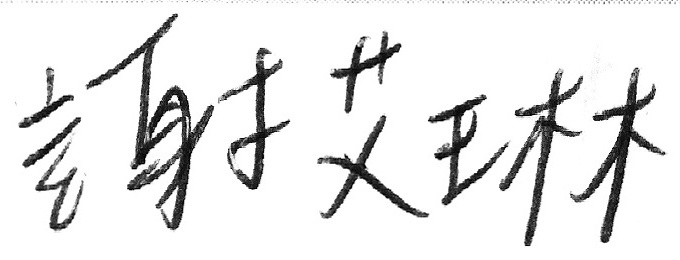 謝艾琳